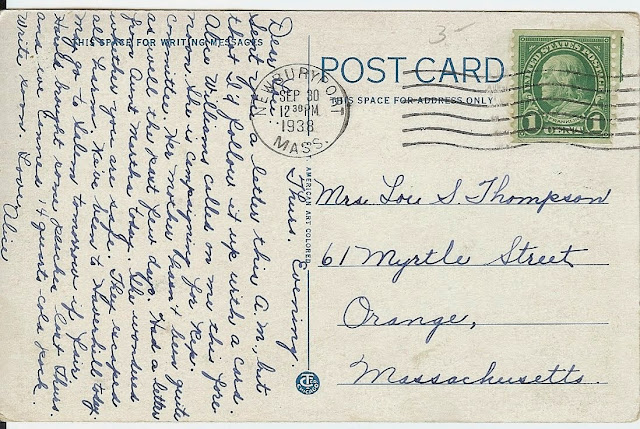 THIS SPACE FOR WRITING MESSAGES
POST CARD
THIS SPACE FOR ADDRESS ONLY
3-
NEWBURYPORT
SEP 30
12 30 PM
1938
MASS.
UNITED STATES POSTAGE
FRANKLIN
1 CENT 1
AMERICAN ART COLORED
Thurs. Evening.
Dear
Sent you a letter this A.M., but
tho't I'd follow it up with a card.
Alice Williams called on me this fore
noon. She is campaigning for Rep.
committee. Her mother hasn't been quite
as well the past few days. Had a letter
from Aunt Martha today. She wonders
whether you are safe. They escaped
all harm. We've been to Haverhill today.
May go to Salem tomorrow if fair.
Harold bought some peaches last Thurs.
and we canned 7 quarts cold pack
Write soon. Love, Alice
Mrs. Lois S. Thompson
61 Myrtle Street
Orange,
Massachusetts.